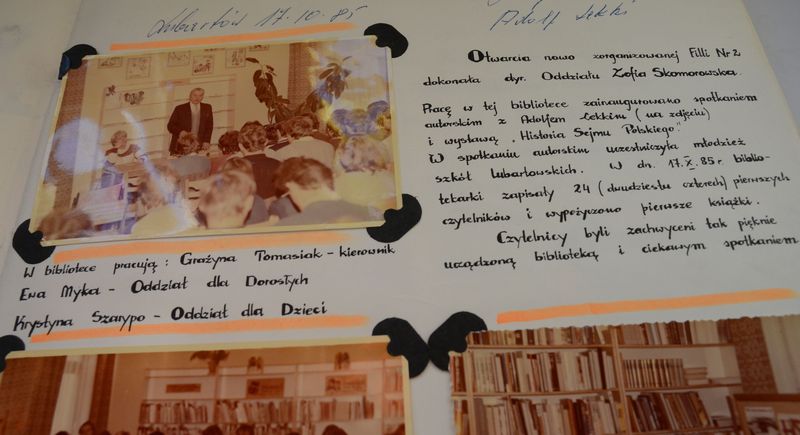 Lubartów 17.10.85
Adolf Lekki
Otwarcia nowo zorganizowanej Filii Nr 2
dokonała dyr. Oddziału Zofia Skomorowska.
Pracę w tej bibliotece zainaugurowano spotkaniem
autorskim z Adolfem Lekkim (na zdjęciu)
i wystawą „Historia Sejmu Polskiego".
W spotkaniu autorskim uczestniczyła młodzież
szkół lubartowskich. W dn. 17.X.85 r. biblio-
tekarki zapisały 24 (dwudziestu czterech) pierwszych
czytelników i wypożyczono pierwsze książki.
Czytelnicy byli zachwyceni tak pięknie
urządzoną biblioteką i ciekawym spotkaniem
W bibliotece pracują: Grażyna Tomasiak - kierownik
Ewa Myka - Oddział dla Dorosłych
Krystyna Szarypo - Oddział dla Dzieci